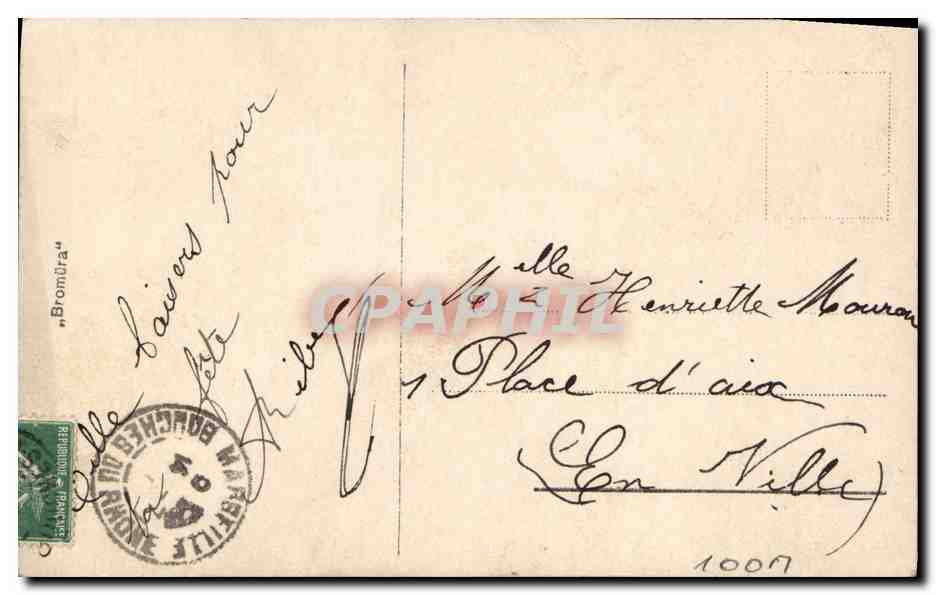 „Bromüra“
Mille baisers pour
ta fête
REPUBLIQUE FRANÇAISE
MARSEILLE
BOUCHES DU RHONE
CPAPHIL
Mlle Henriette Mouron
1 Place d'aix
(En Ville)
100M